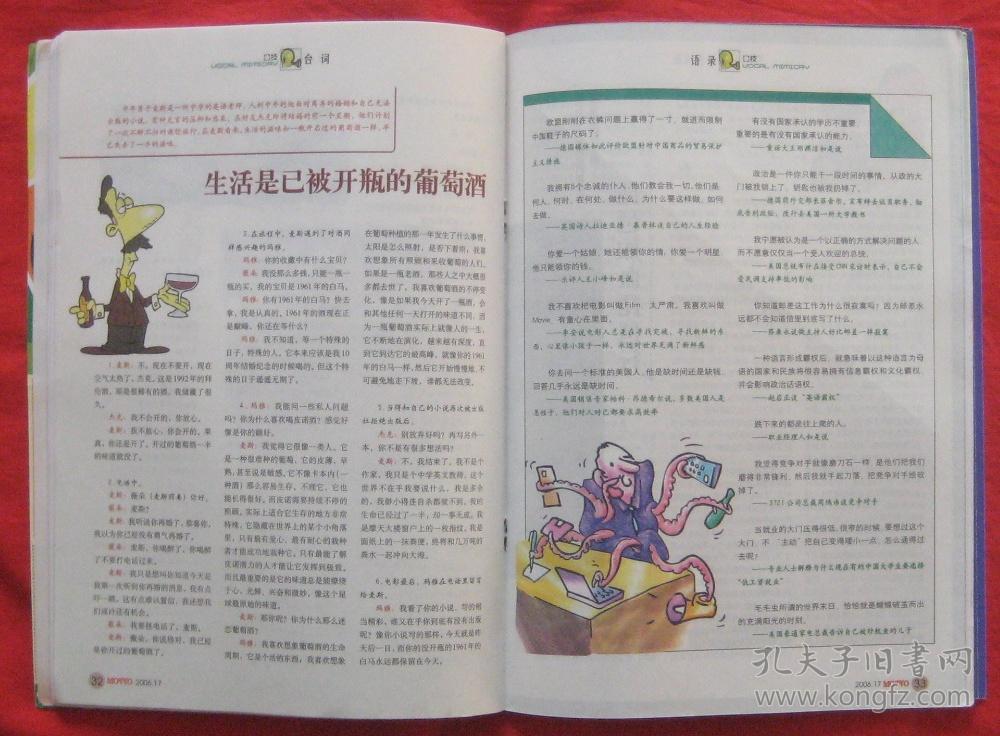 口技
VOCAL MIMICRY
台词
中年男子麦斯是一所中学的英语老师，人到中年的他面对离异的婚姻和自己无法
生活是已被开瓶的葡萄酒
1.麦斯：不，现在不要开，现在
空气太热了，杰克。这是1992年的拜
伦酒，那是很稀有的酒，我储藏了很
久。
杰克：我不会开的，你放心。
麦斯：我不放心，你会开的。果
真，你还是开了。开过的葡萄酒一半
的味道就没了。
2.电话中。
麦斯：薇朵（麦斯前妻）你好。
薇朵：麦斯？
麦斯：我听说你再婚了，恭喜你，
我以为你已经没有勇气再婚了。
薇朵：麦斯，你喝醉了，你喝醉
了不要打电话过来。
麦斯：我只是想叫你知道今天是
我第一次听到你再婚的消息，我有点
吓一跳。这有点难以置信，我还想我
们或许还有机会。
薇朵：我要挂电话了，麦斯。
麦斯：薇朵，你说得对，我已经
是你开过的葡萄酒了。
3.在旅程中，麦斯遇到了对酒同
样感兴趣的玛雅。
玛雅：你的收藏中有什么宝贝？
麦斯：我没那么多钱，只能一瓶一
瓶的买，我的宝贝是1961年的白马。
玛雅：你有1961年的白马？快去
拿，我是认真的，1961年的酒现在正
是巅峰，你还在等什么？
麦斯：我不知道，等一个特殊的
日子，特殊的人。它本来应该是我10
周年结婚纪念的时候喝的，但这个特
殊的日子遥遥无期了。
4.玛雅：我能问一些私人问题
吗？你为什么喜欢喝皮诺酒？感觉好
像是你的癖好。
麦斯：我觉得它很像一类人，它
是一种很难种的葡萄，它的皮薄、早
熟，甚至说是敏感，它不像卡本内（一
种酒）那么容易生存，不理它，它也
能长得很好。而皮诺需要持续不停的
照顾。实际上适合它生存的地方非常
特殊，它隐藏在世界上的某个小角落
里，只有最有爱心、最有耐心的栽种
者才能成功地栽种它，只有最能了解
皮诺潜力的人才能让它发挥到极致。
而且最重要的是它的味道总是能撩绕
于心，光鲜、兴奋和微妙，像这个星
球最原始的味道。
麦斯：那你呢？你为什么那么迷
恋葡萄酒？
玛雅：我喜欢想象葡萄酒的生命
周期，它是个活的东西，我喜欢想象
在葡萄种植的那一年发生了什么事情，
太阳是怎么照射，是否下着雨，我喜
欢想象所有照顾和采收葡萄的人们。
如果是一瓶老酒，那些人之中大概很
多都去世了。我喜欢葡萄酒的不停变
化，像是如果我今天开了一瓶酒，会
和其他任何一天打开的味道不同，因
为一瓶葡萄酒实际上就像人的一生，
它不断地在演化，越来越有深度，直
到它到达它的最高峰，就像你的1961年
的白马一样，然后它开始慢慢地、不
可避免地走下坡，谁都无法改变。
5.当得知自己的小说再次被出版
社拒绝出版后。
杰克：别放弃好吗？再写另外一
本，你不是有很多想法吗？
麦斯：不，我结束了，我不是个
作家，我只是个中学英文教师，这个
世界不在乎我要说什么，我是多余
的，我渺小得连自杀都做不到。我的
生命已经过了一半，却一事无成。我
是摩天大楼窗户上的一枚指纹，我是
面纸上的一抹粪便，终将和几万吨的
粪水一起冲向大海。
6.电影最后，玛雅在电话里留言
给麦斯。
玛雅：我看了你的小说，写的相
当精彩，谁又在乎你到底有没有出版
呢？像你小说写的那样，今天就是昨
天后一日，而你的没开瓶的1961年的
白马永远都保留在今天。
32 MOTTO 2006.17
语录
口技
VOCAL MIMICRY
欧盟刚刚在衣裤问题上赢得了一寸，就进而限制
中国鞋子的尺码了。
——德国媒体如此评价欧盟针对中国商品的贸易保护
主义措施
我拥有6个忠诚的仆人，他们教会我一切，他们是
何人、何时、在何处、做什么、为什么要这样做、如何
去做。
——英国诗人拉迪亚德·基普林谈自己的人生经验
你爱一个姑娘，她还能领你的情，你爱一个明星，
他只能领你的钱。
——乐评人王小峰如是说
我不喜欢把电影叫做Film，太严肃。我喜欢叫做
Movie，有童心在里面。
——李安说电影人总是在寻找突破，寻找新鲜的东
西，心里像小孩子一样，永远对世界充满了新鲜感
你去问一个标准的美国人，他是缺时间还是缺钱，
回答几乎永远是缺时间。
——美国销售专家帕科·昂德希尔说，多数美国人是
急性子，他们对人对己都要求高效率
有没有国家承认的学历不重要，
重要的是有没有国家承认的能力。
——童话大王郑渊洁如是说
政治是一件你只能干一段时间的事情，从政的大
门被我锁上了，钥匙也被我扔掉了。
我宁愿被认为是一个以正确的方式解决问题的人，
而不愿意仅仅当一个受人欢迎的总统。
——美国总统布什在接受CNN采访时表示，自己不会
受民调支持率低的影响
你知道邮差这工作为什么很寂寞吗？因为邮差永
远都不会知道信里到底写了什么。
一种语言形成霸权后，就意味着以这种语言为母
语的国家和民族将很容易拥有信息霸权和文化霸权，
并会影响政治话语权。
——赵启正谈“英语霸权”
跌下来的都是往上爬的人。
——职业经理人如是说
我觉得竞争对手就像磨刀石一样，是他们把我们
磨得非常锋利，然后我就手起刀落，把竞争对手给砍
掉了。
——3721公司总裁周鸿祎谈竞争对手
当就业的大门压得很低、很窄的时候，要想过这个
大门，不“主动”把自己变得矮小一点，怎么通得过
去呢？
——专业人士解释为什么现在有的中国大学生要选择
“低工资就业”
毛毛虫所谓的世界末日，恰恰就是蝴蝶破茧而出
的充满阳光的时刻。
2006.17 MOTTO 33
孔夫子旧书网
www.kongfz.com